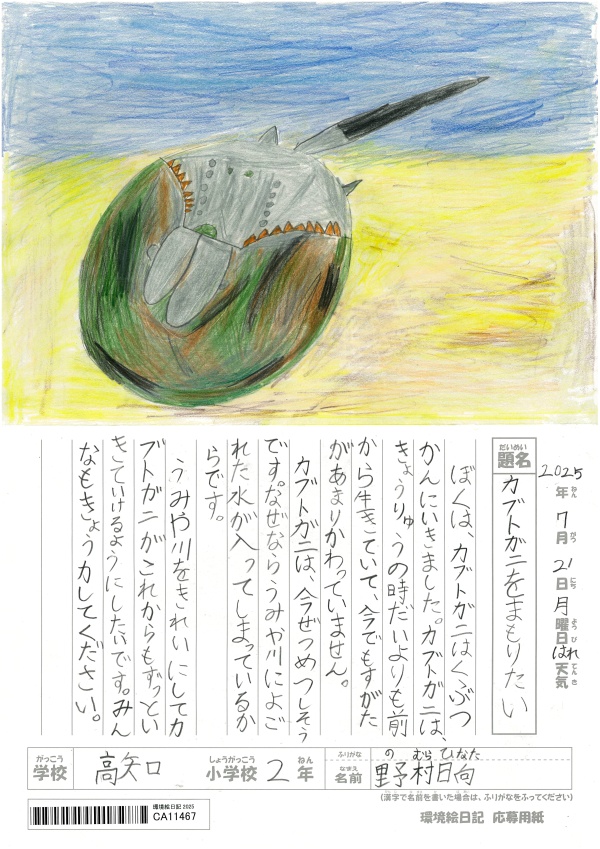 2025年ねん7月がつ21日にち月曜日ようびはれ天気てんき
だいめい
題名
カブトガニをまもりたい
ぼくは、カブトガニはくぶつ
かんにいきました。カブトガニは、
きょうりゅうの時だいよりも前
から生きていて、今でもすがた
があまりかわっていません。
カブトガニは、今ぜつめつしそう
です。なぜならうみや川によご
れた水が入ってしまっているか
らです。
うみや川をきれいにしてカ
ブトガニがこれからもずっとい
きていけるようにしたいです。みん
なもきょう力してください。
がっこう
学校
高矢口
しょうがっこう
小学校
2
ねん
年
ふりがな
の むら ひなた
なまえ
名前
野村日向
(漢字で名前を書いた場合は、ふりがなをふってください)
環境絵日記 2025
CA11467
環境絵日記 応募用紙